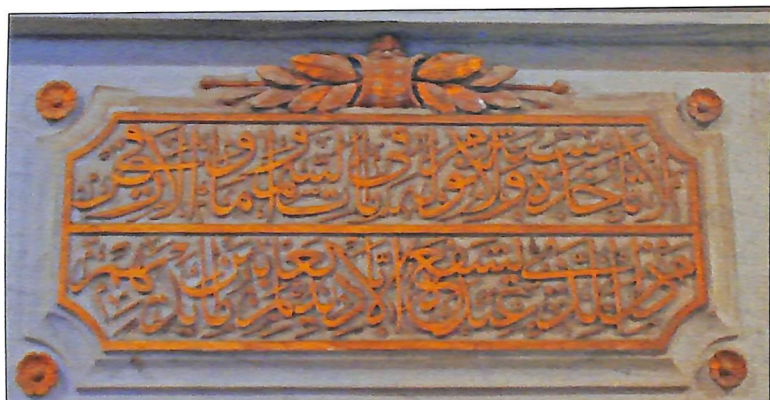 لا تأخذه سنة ولا نوم له ما في السموات وما في الأرض
من ذا الذي يشفع عنده إلا بإذنه يعلم ما بين أيديهم